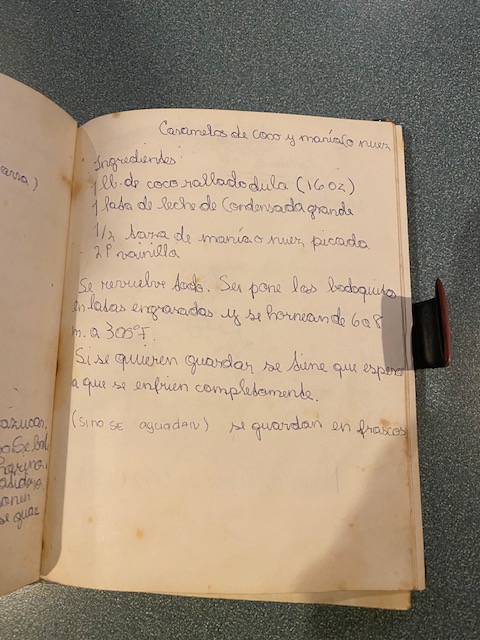 Caramelos de coco y manía (o nuez
Ingredientes:
1 lb. de coco rallado dula (16 oz)
1 lata de leche de Condensada grande
1/2 taza de manía o nuez picada
2 P vainilla
Se revuelve todo. Ses pone las bodoquitos
en latas engrasadas y se hornean de 6 a 8
m. a 300°F.
Si se quieren guardar se tiene que espera
a que se enfrien completamente.
(SINO SE AGUADAN) se guardan en frascos
arra)
azucar.